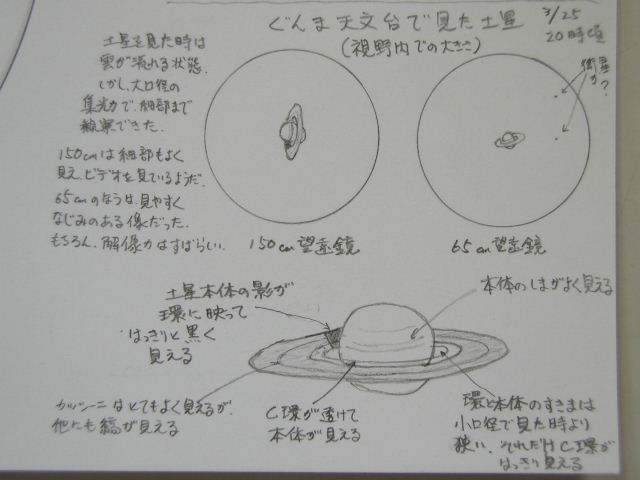 ぐんま天文台で見た土星
(視野内での大きさ)
3/25
20時頃
土星を見た時は
雲が流れる状態。
しかし、大口径の
集光力で、細部まで
観察できた。
150cmは細部もよく
見え、ビデオを見ているようだ。
65cmのほうは、見やすく
なじみのある像だった。
もちろん、解像力はすばらしい。
衛星
か?
150cm望遠鏡
65cm望遠鏡
土星本体の影が
環に映って
はっきりと黒く
見える
本体のしまがよく見える
カッシーニはとてもよく見えるが、
他にも縞が見える
C環が透けて
本体が見える
環と本体のすきまは
小口径で見た時より
狭い。それだけC環が
はっきり見える